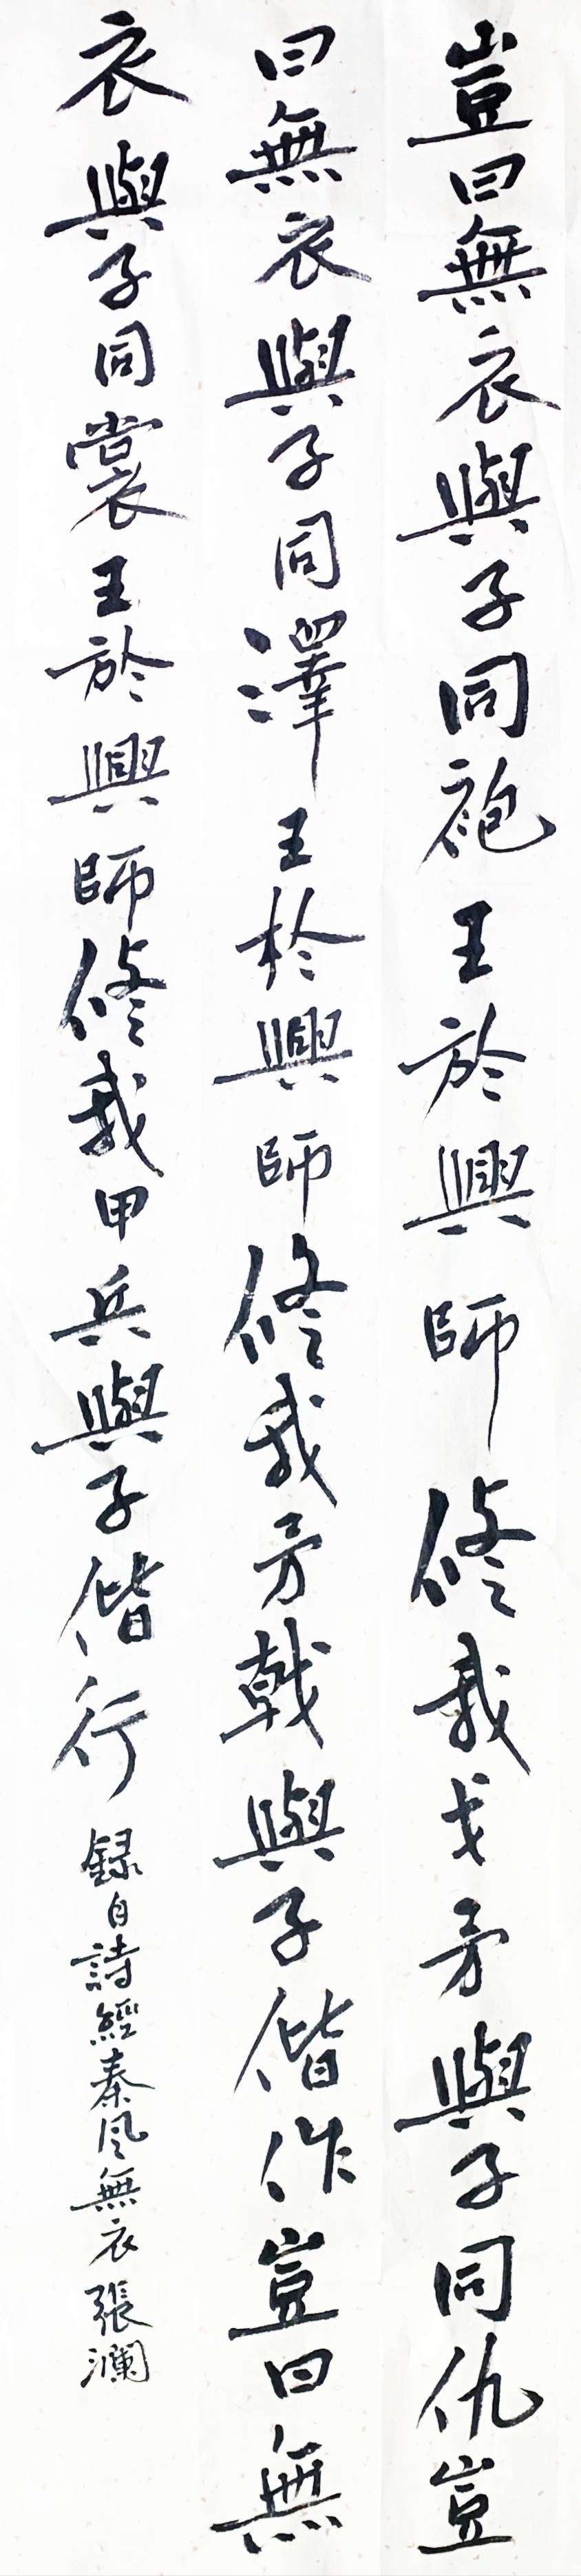 豈曰無衣與子同袍王於興師修我戈矛與子同仇豈
曰無衣與子同澤王於興師修我矛戟與子偕作豈曰無
衣與子同裳王於興師修我甲兵與子偕行 録自詩經秦風無衣 張瀾